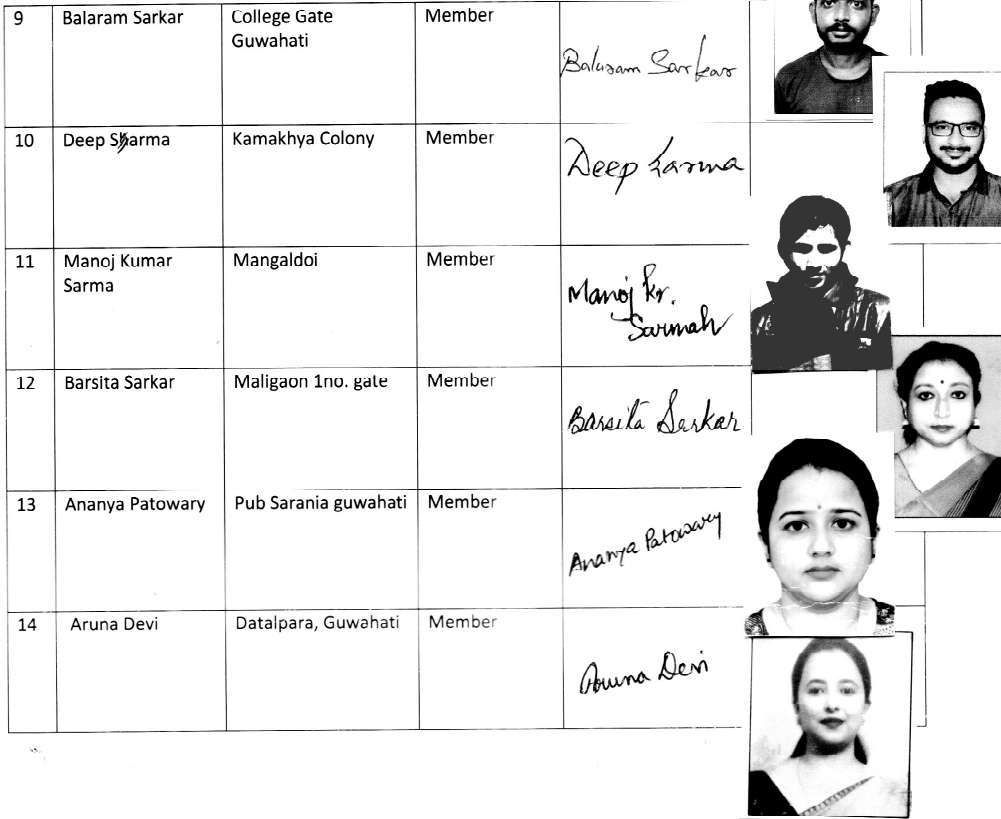 9 Balaram Sarkar College Gate Member
Guwahati
Balaram Sarkar
10 Deep Sharma Kamakhya Colony Member
Deep Sarma
11 Manoj Kumar Mangaldoi Member
Sarma
Manoj Kr.
Sarmah
12 Barsita Sarkar Maligaon 1no. gate Member
Barsita Sarkar
13 Ananya Patowary Pub Sarania guwahati Member
Ananya Patowary
14 Aruna Devi Datalpara, Guwahati Member
Aruna Devi